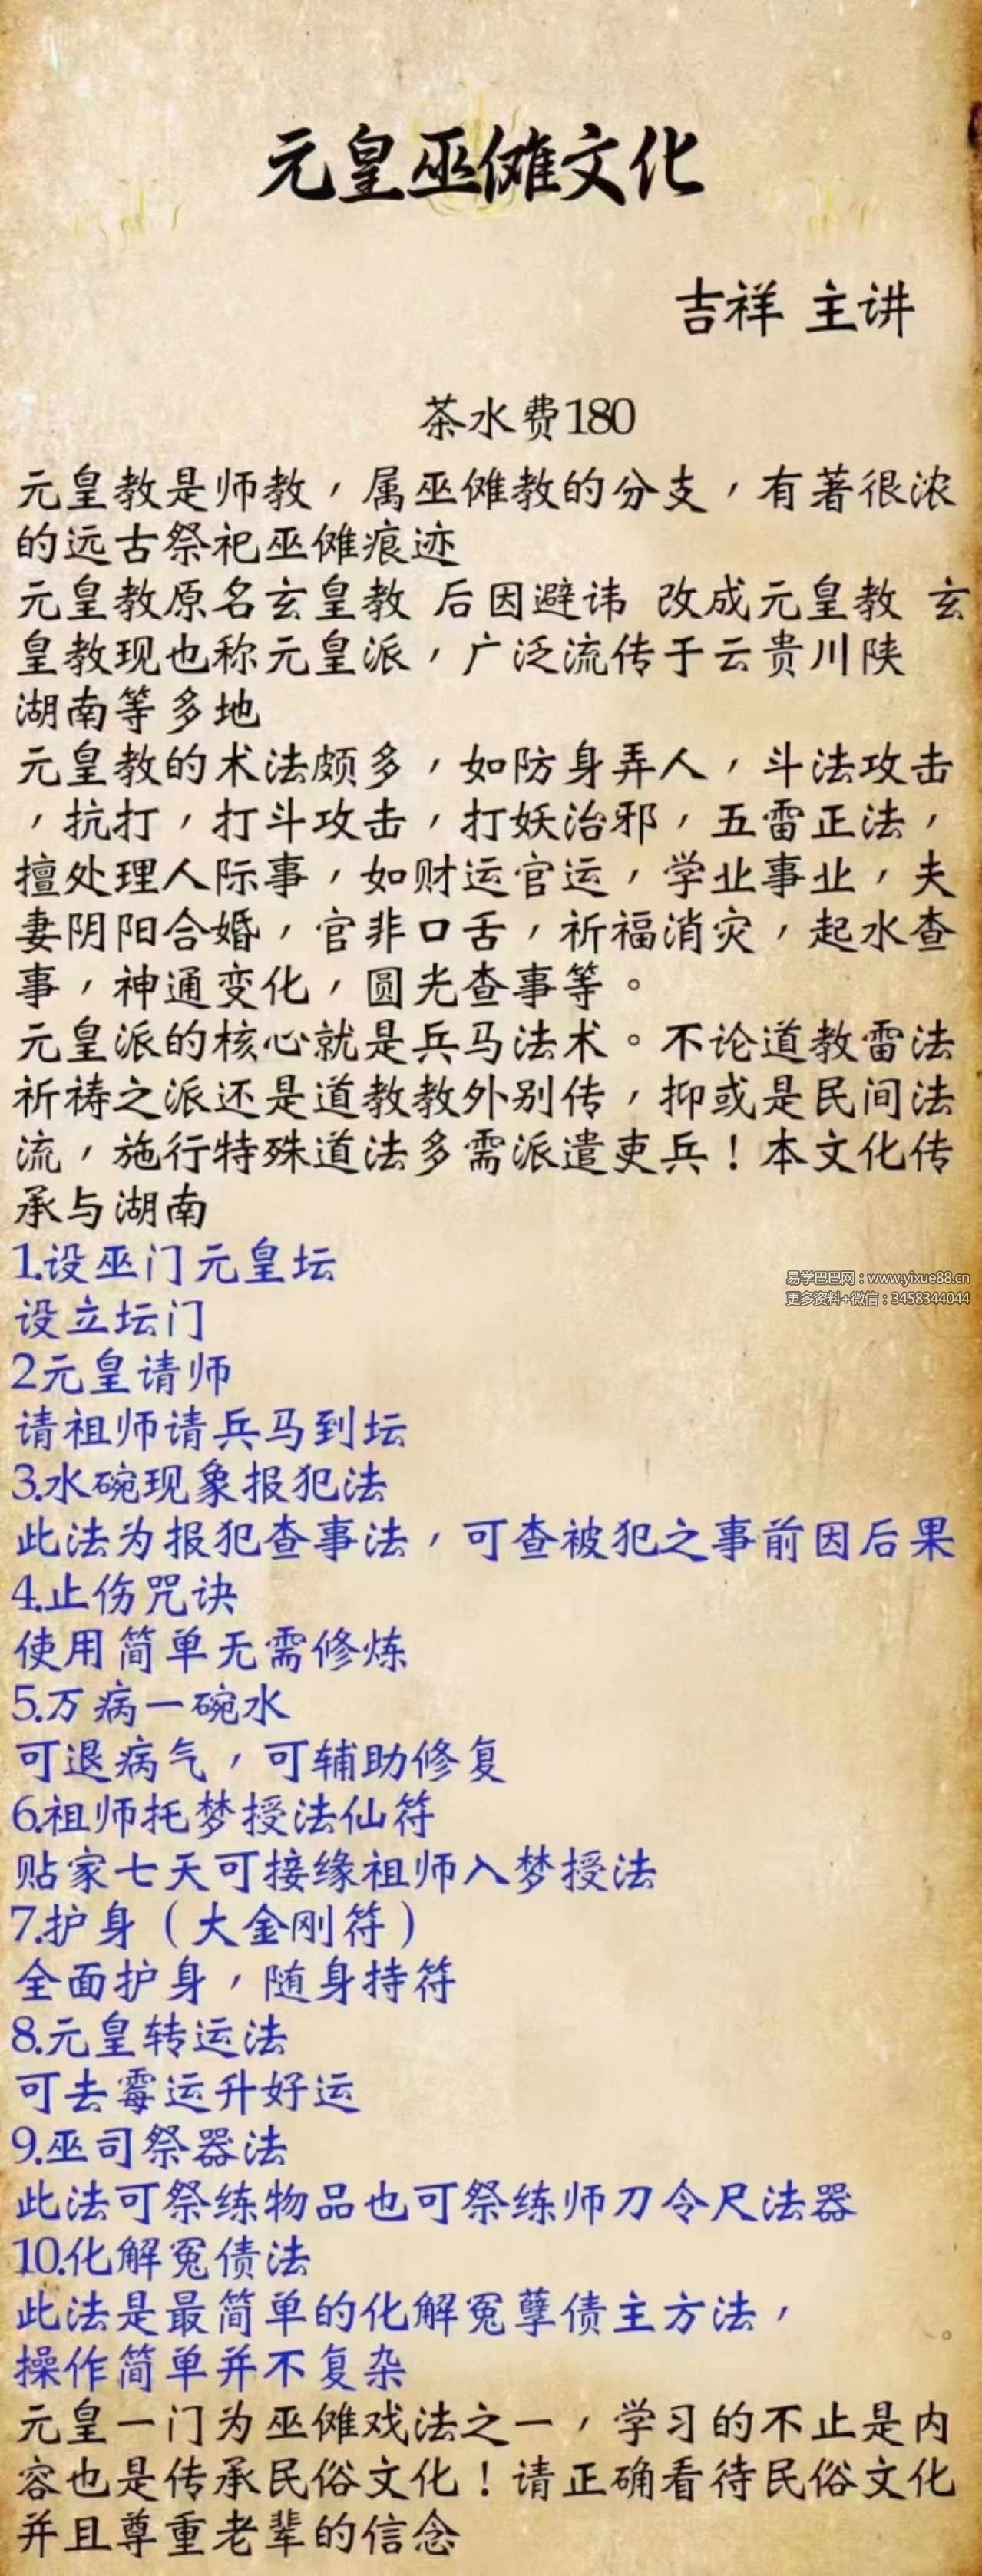 元皇巫傩文化
吉祥 主讲
茶水费180
元皇教是师教，属巫傩教的分支，有著很浓
的远古祭祀巫傩痕迹
元皇教原名玄皇教 后因避讳 改成元皇教 玄
皇教现也称元皇派，广泛流传于云贵川陕
湖南等多地
元皇教的术法颇多，如防身弄人，斗法攻击
，抗打，打斗攻击，打妖治邪，五雷正法，
擅处理人际事，如财运官运，学业事业，夫
妻阴阳合婚，官非口舌，祈福消灾，起水查
事，神通变化，圆光查事等。
元皇派的核心就是兵马法术。不论道教雷法
祈祷之派还是道教教外别传，抑或是民间法
流，施行特殊道法多需派遣吏兵！本文化传
承与湖南
1.设巫门元皇坛
易学巴巴网：www.yixue88.cn
更多资料+微信：3458344044
设立坛门
2元皇请师
请祖师请兵马到坛
3.水碗现象报犯法
此法为报犯查事法，可查被犯之事前因后果
4.止伤咒诀
使用简单无需修炼
5.万病一碗水
可退病气，可辅助修复
6.祖师托梦授法仙符
贴家七天可接缘祖师入梦授法
7.护身（大金刚符）
全面护身，随身持符
8.元皇转运法
可去霉运升好运
9.巫司祭器法
此法可祭练物品也可祭练师刀令尺法器
10.化解冤债法
此法是最简单的化解冤孽债主方法，
操作简单并不复杂
。
元皇一门为巫傩戏法之一，学习的不止是内
容也是传承民俗文化！请正确看待民俗文化
并且尊重老辈的信念